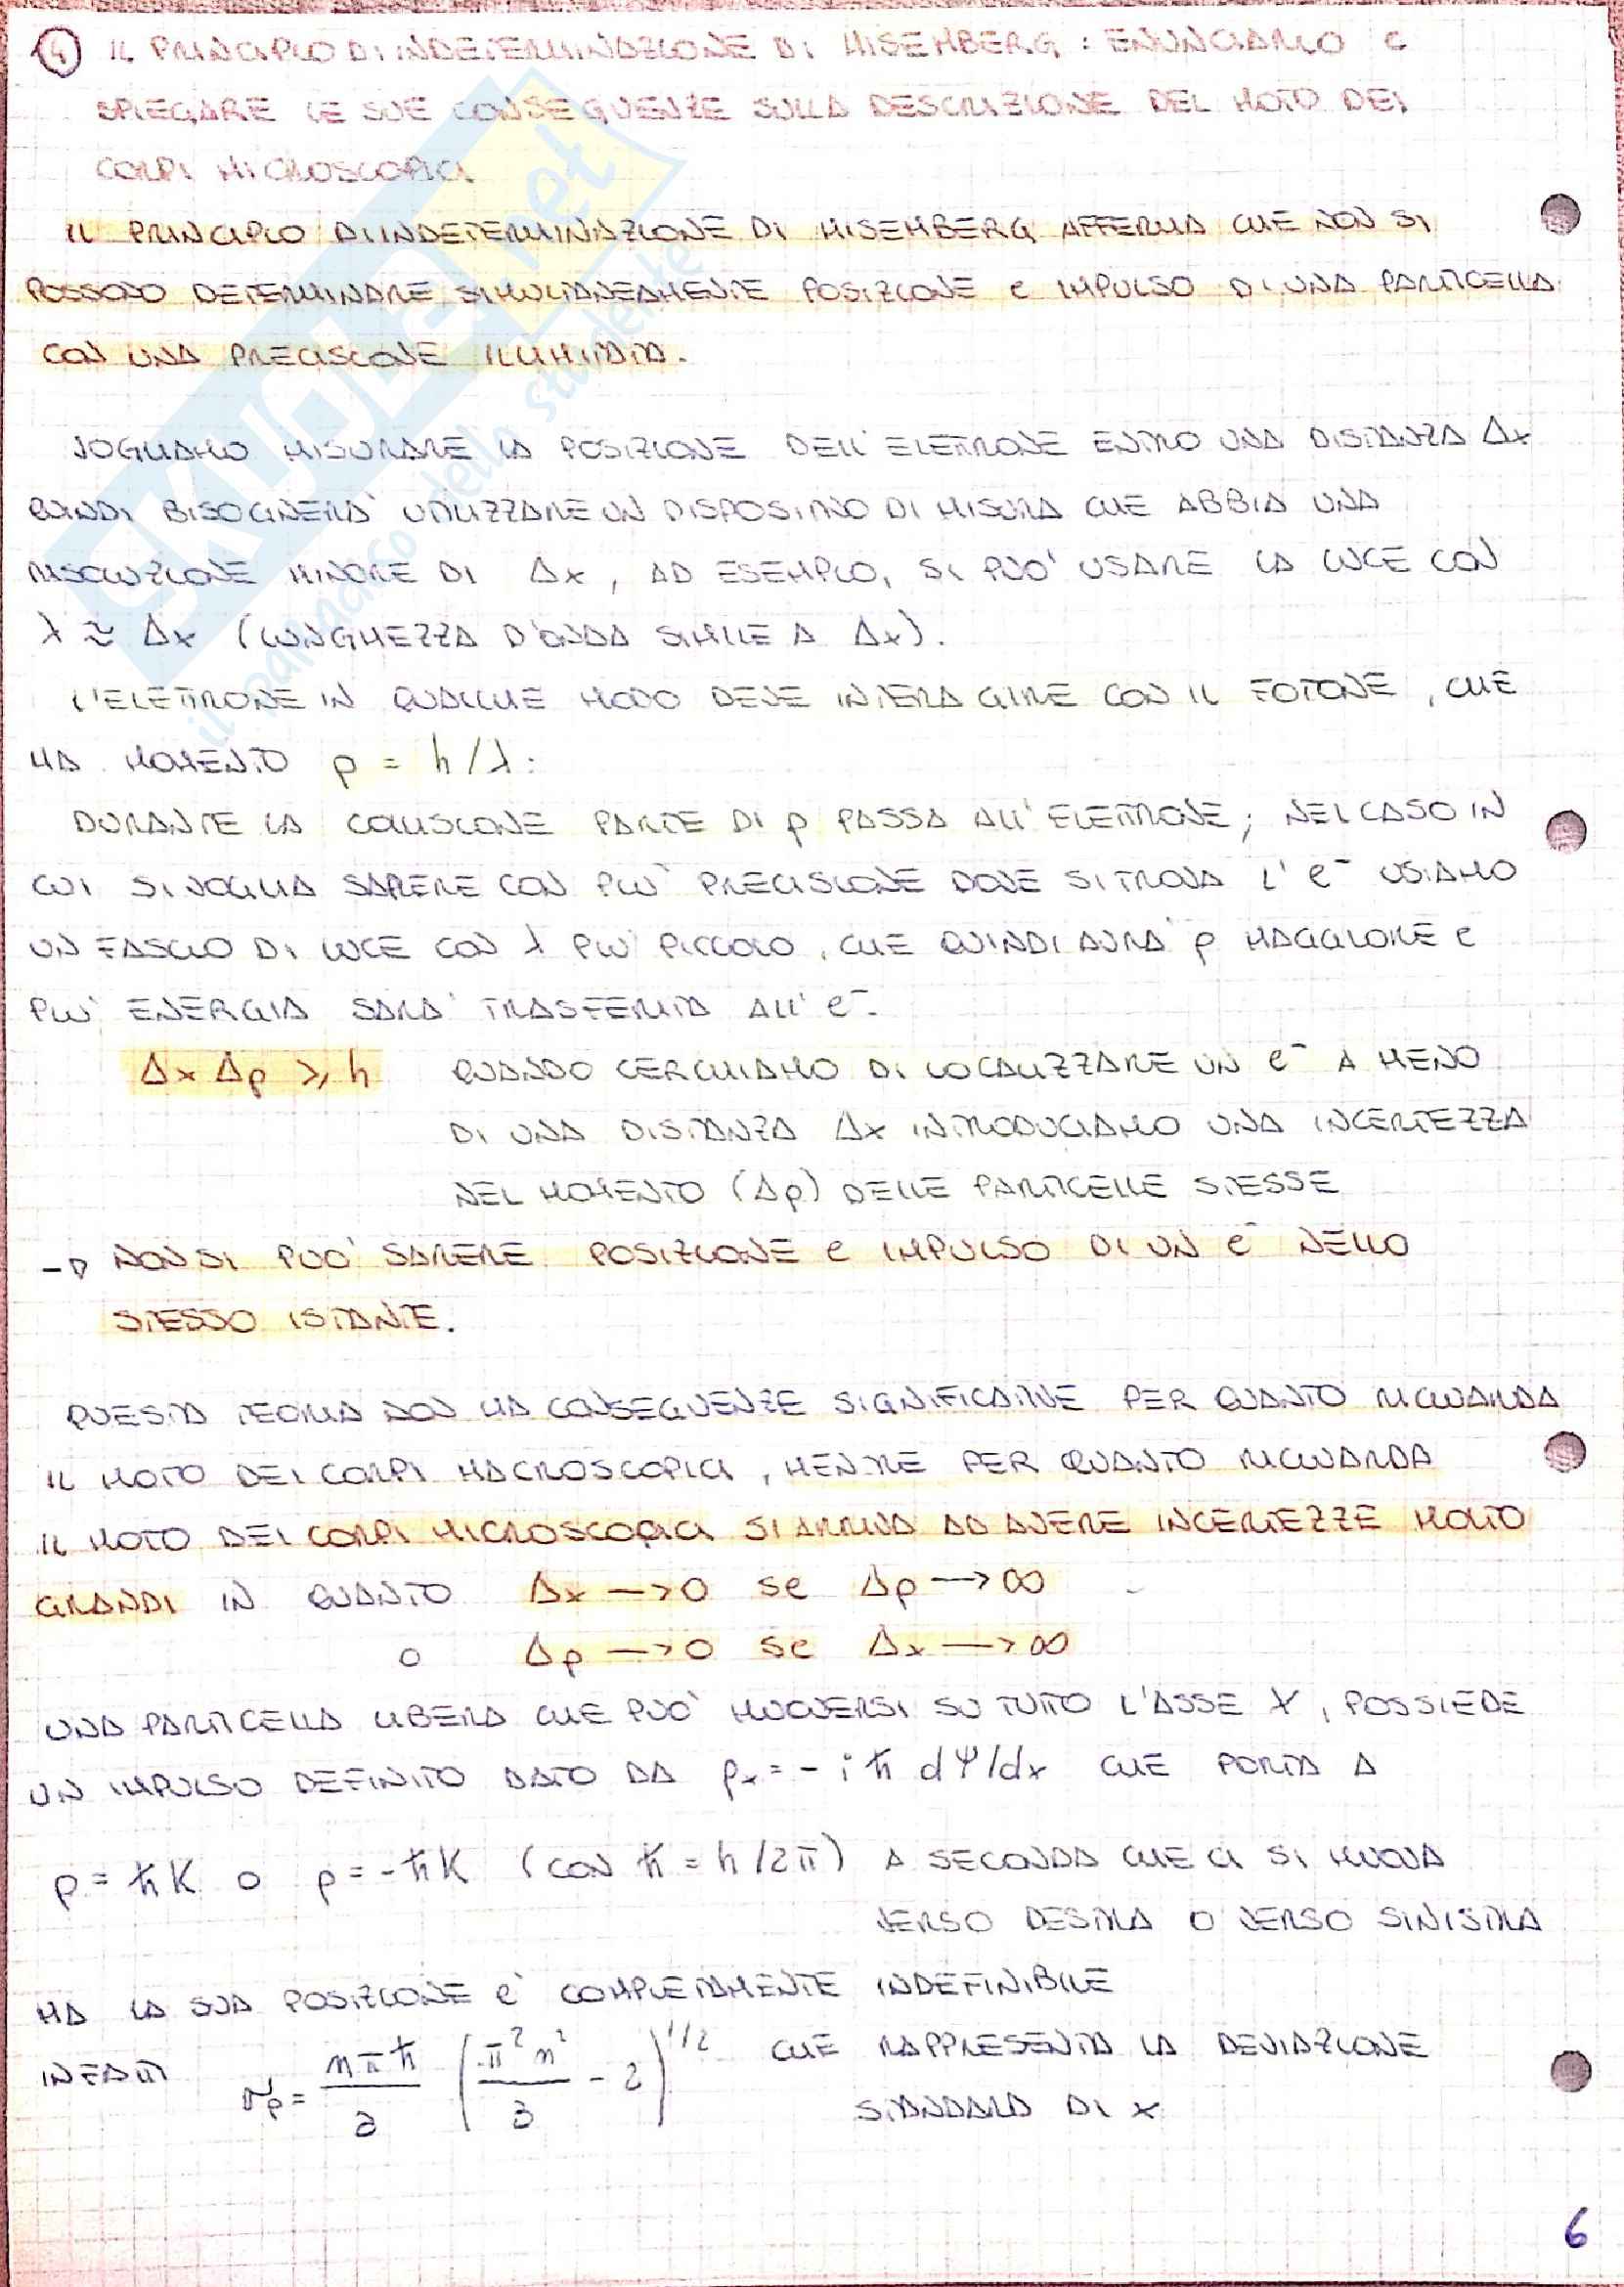 4 IL PRINCIPIO DI INDETERMINAZIONE DI HISEMBERG : ENUNCIARLO E
SPIEGARE LE SUE CONSEGUENZE SULLA DESCRIZIONE DEL MOTO DEI
CORPI MICROSCOPICI.
IL PRINCIPIO DI INDETERMINAZIONE DI HISEMBERG AFFERMA CHE NON SI
POSSONO DETERMINARE SIMULTANEAMENTE POSIZIONE E IMPULSO DI UNA PARTICELLA
CON UNA PRECISIONE ILLIMITATA.
VOGLIAMO MISURARE LA POSIZIONE DELL'ELETTRONE ENTRO UNA DISTANZA Δx
QUINDI BISOGNERA' UTILIZZARE UN DISPOSITIVO DI MISURA CHE ABBIA UNA
RISOLUZIONE MINORE DI Δx, AD ESEMPIO, SI PUO' USARE LA LUCE CON
λ ≈ Δx (LUNGHEZZA D'ONDA SIMILE A Δx).
L'ELETTRONE IN QUALCHE MODO DEVE INTERAGIRE CON IL FOTONE, CHE
HA MOMENTO p = h/λ:
DURANTE LA COLLISIONE PARTE DI p PASSA ALL'ELETTRONE; NEL CASO IN
CUI SI VOGLIA SAPERE CON PIU' PRECISIONE DOVE SI TROVA L'e⁻ USIAMO
UN FASCIO DI LUCE CON λ PIU' PICCOLO, CHE QUINDI AVRA' p MAGGIORE E
PIU' ENERGIA SARA' TRASFERITA ALL'e⁻.
Δx Δp ≥ h QUANDO CERCHIAMO DI LOCALIZZARE UN e⁻ A MENO
DI UNA DISTANZA Δx INTRODUCIAMO UNA INCERTEZZA
NEL MOMENTO (Δp) DELLE PARTICELLE STESSE
→ NON SI PUO' SAPERE POSIZIONE E IMPULSO DI UN e⁻ NELLO
STESSO ISTANTE.
QUESTA TEORIA NON HA CONSEGUENZE SIGNIFICATIVE PER QUANTO RIGUARDA
IL MOTO DEI CORPI MACROSCOPICI, MENTRE PER QUANTO RIGUARDA
IL MOTO DEI CORPI MICROSCOPICI SI ARRIVA AD AVERE INCERTEZZE MOLTO
GRANDI IN QUANTO Δx → 0 se Δp → ∞
O Δp → 0 se Δx → ∞
UNA PARTICELLA LIBERA CHE PUO' MUOVERSI SU TUTTO L'ASSE X, POSSIEDE
UN IMPULSO DEFINITO DATO DA pₓ = - i ħ dΨ/dx CHE PORTA A
p = ħK O p = -ħK (CON ħ = h/2π) A SECONDA CHE CI SI MUOVA
VERSO DESTRA O VERSO SINISTRA
MA LA SUA POSIZIONE E' COMPLETAMENTE INDEFINIBILE
INFATTI σp = nπħ/a (π²n²/3 - 2)^1/2 CHE RAPPRESENTA LA DEVIAZIONE
STANDARD DI x
6
SKUOLA.net
il paradiso dello studente